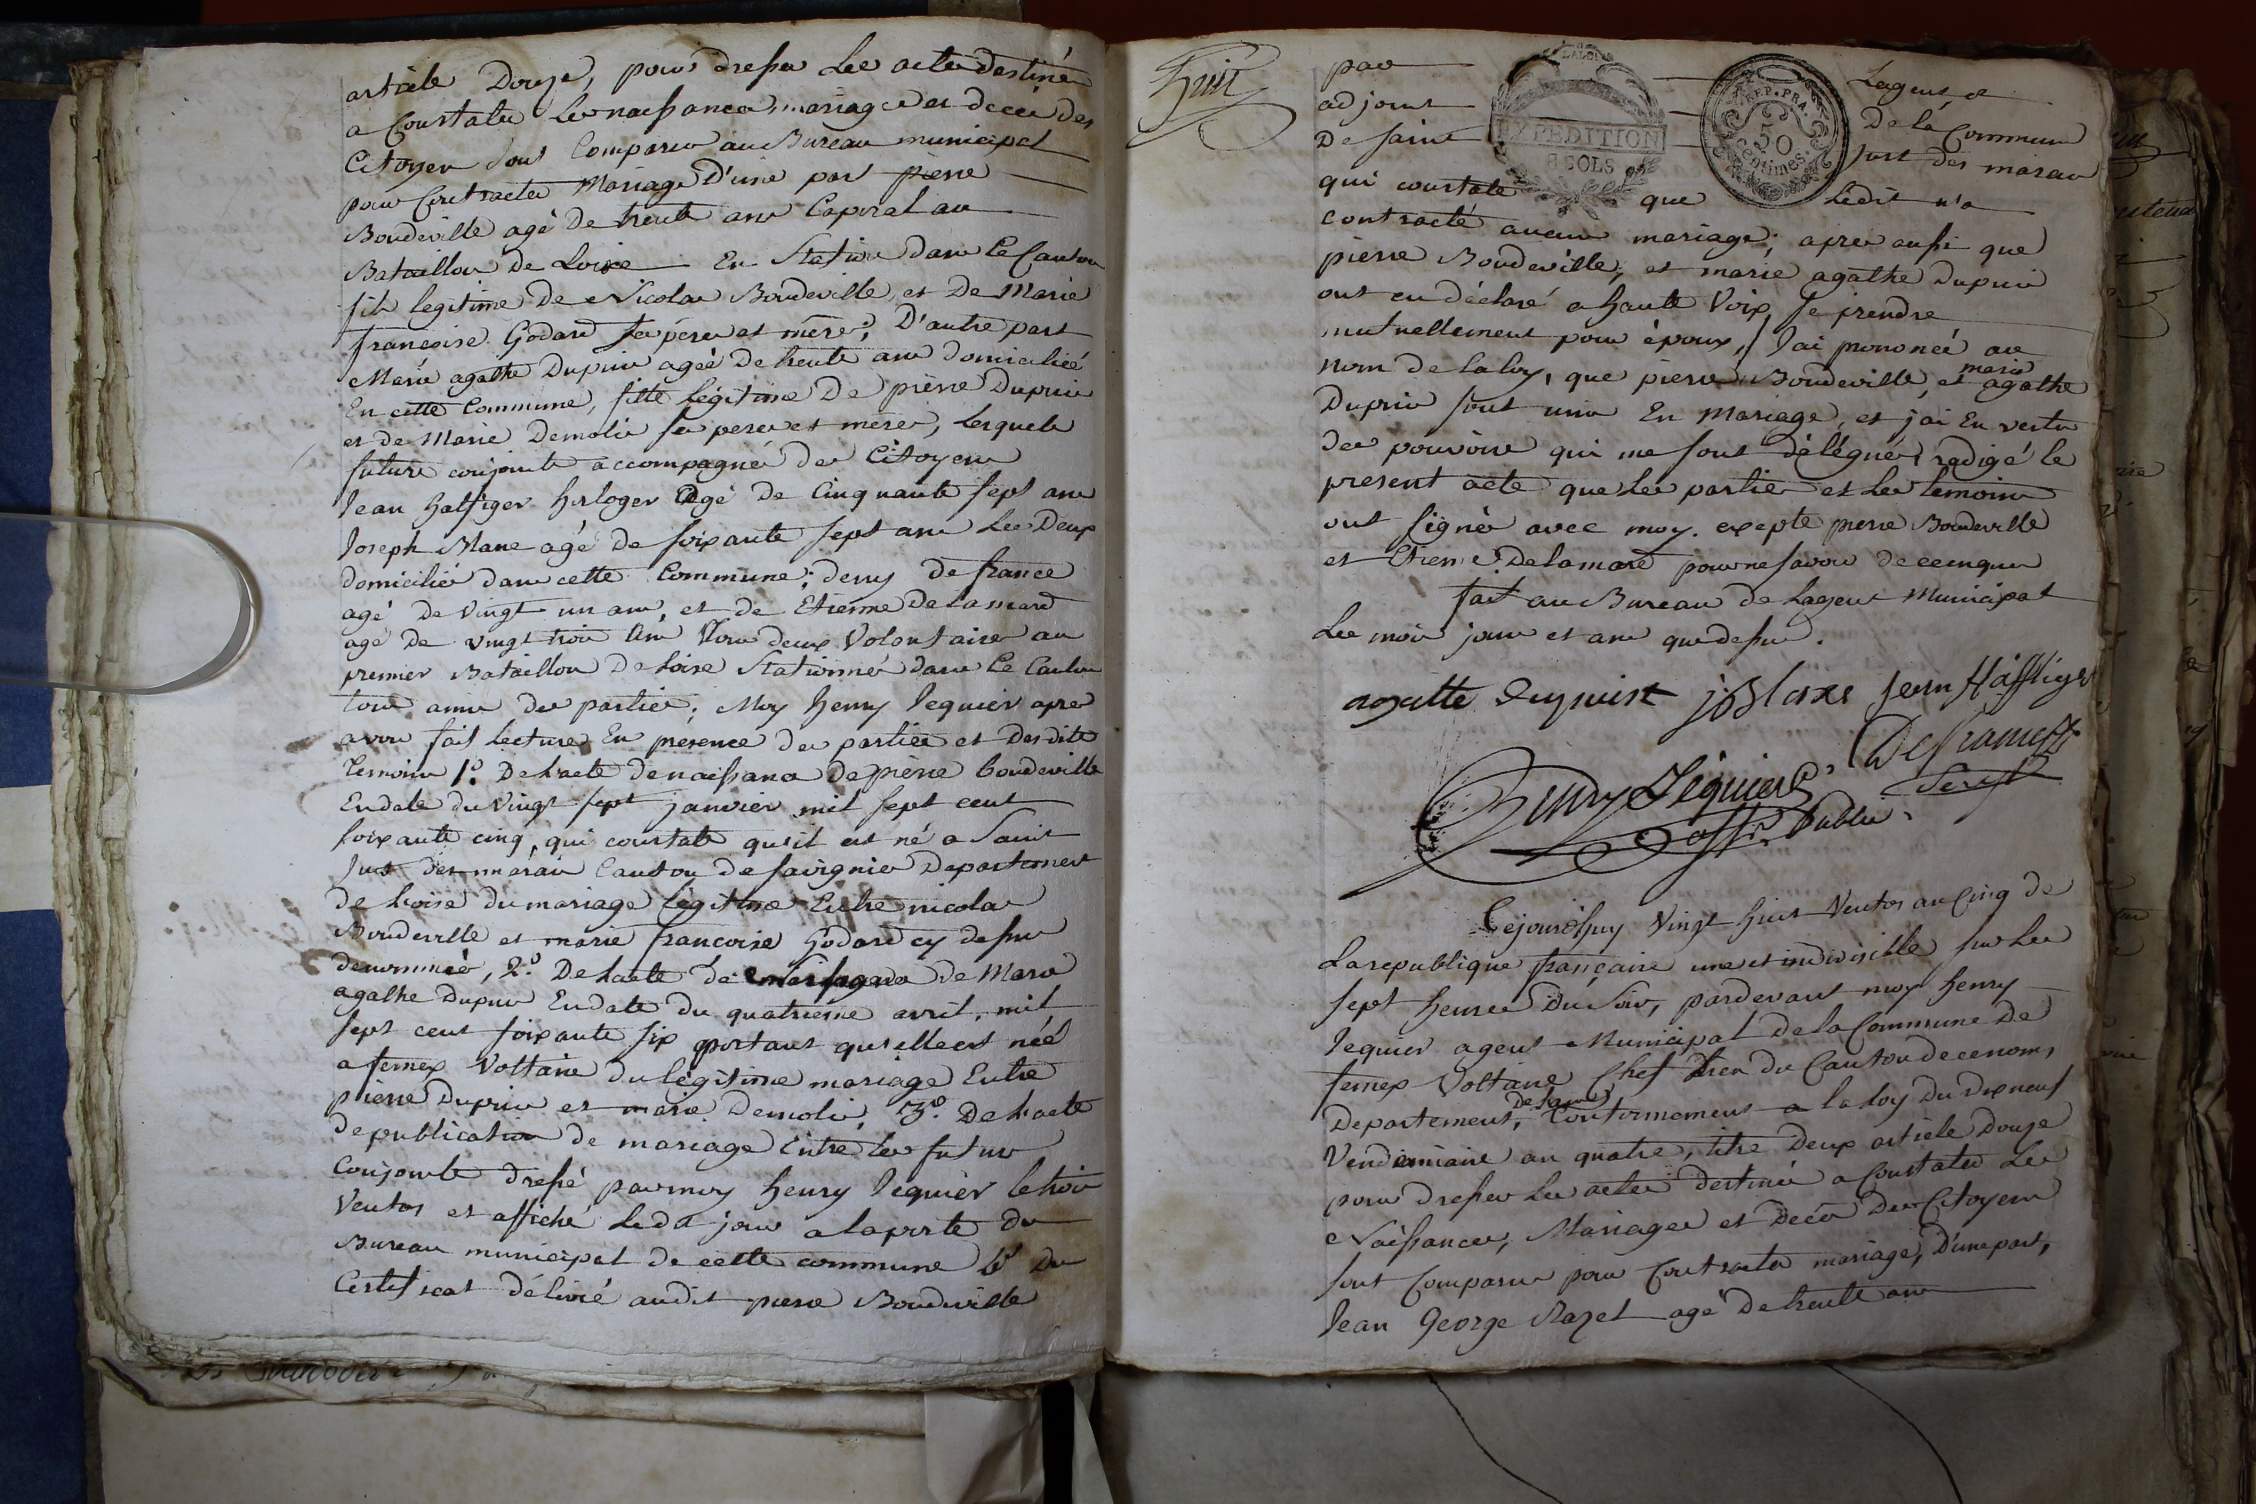 article Douze, pour dresser Les actes destinés
a Constater Les naissances, mariages et deces des
Citoyens sont Comparus au Bureau municipal
pour Contracter Mariage D'une part pierre
Boudeville agé de trente ans Caporal au
Bataillon de Loise En Station dans le Canton
fils legitime de Nicolas Boudeville, et De Marie
francoise Godard ses pere et mere; D'autre part
Marie agathe Dupuis agée de trente ans domiciliée
En cette Commune, fille légitime De pierre Dupuis
et de Marie Demolis ses peres et meres, Lesquels
futurs conjoints accompagnés des Citoyens
Jean Haffiger horloger agé de Cinquante sept ans
Joseph Blanc agé de soixante sept ans Les Deux
domiciliés dans cette Commune; denys de france
agé de vingt un ans, et de Etienne De Lamard
agé de vingt trois ans Tous deux Volontaires au
premier Bataillon De Loise Stationnés dans Le Canton
tous amis des parties; Moy henry Jequier apres
avoir fait Lecture En presence des parties et Desdits
temoins 1.º De L'acte de naissance de pierre boudeville
En date du vingt sept janvier mil sept cent
soixante cinq, qui constate qu'il est né a Saint
Just des marais Canton de savignies Departement
de Loise du mariage légitime Entre nicolas
Boudeville et marie francoise Godard cy dessus
denommés, 2.º De Lacte de de Marie
agathe Dupuis En date du quatrieme avril, mil
sept cent soixante six portant qu'elle est née
a fernex Voltaire du légitime mariage Entre
pierre Dupuis et marie Demolis, 3.º De L'acte
de publication de mariage Entre les futurs
Conjoints dressé par moy henry Jequier le trois
Ventos et affiché Ledit jour a la porte du
Bureau municipal de cette commune 4º Du
Certificat délivré audit pierre Boudeville
huit
par Lagent, et
adjoint De la Commune
De saint Just des marais
qui constate que Ledit n'a
contracté aucun mariage; apres aussi que
pierre Boudeville, et marie agathe Dupuis
ont eu déclaré a haute Voix, se prendre
mutuellement pour époux, J'ai prononcé au
nom de la loy, que pierre Boudeville, et marie agathe
Dupuis sont unis En Mariage, et j'ai En vertu
des pouvoirs qui me sont délégués, redigé le
present acte que Les parties et Les temoins
ont signés avec moy. excepte pierre Boudeville
et Etienne Delamard pour ne savoir de ce enquis
fait au Bureau de Lagent Municipal
Les mois jours et ans que dessus.
agatte Jean Häffliger
Defrance
Henry Jéquier
off. Public.
EXPEDITION
8 SOLS
REP. FRA.
50
centimes
Cejourdhuy Vingt huit Ventos an Cinq de
La republique française une et indivisible sur Les
sept heures Du soir, pardevant moy henry
Jequier agent Municipal de la Commune De
fernex Voltaire Chef Lieu du Canton de ce nom,
Departement De Lain, Conformement a la loy Du dix neuf
Vendemiaire an quatre, titre Deux article Douze
pour dresser Les actes destinés a Constater Les
Naissances, Mariages et Deces Des Citoyens
sont Comparus pour Contracter mariage, D'une part,
Jean George Razel agé De trente ans